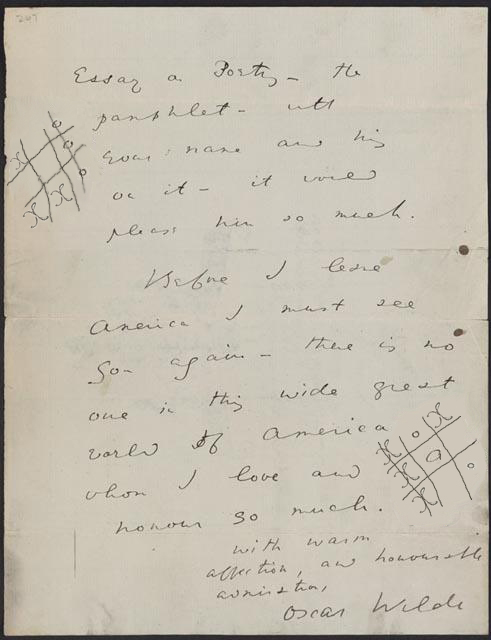 207
Essay on Poetry — the
pamphlet — with
your name and his
on it — it would
please him so much.
Before I leave
America I must see
you again — there is no
one in this wide great
world of America
whom I love and
honour so much.
With warm
affection, and honourable
admiration,
Oscar Wilde